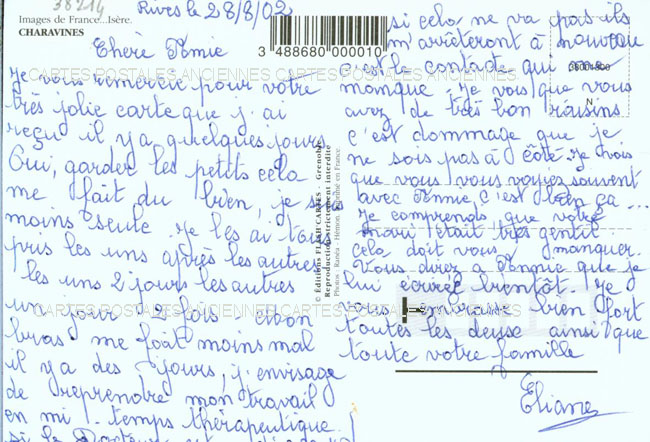 38214
Images de France...Isère.
CHARAVINES
Rives le 28/8/02
Chère Amie
Je vous remercie pour votre
très jolie carte que j'ai
reçu il y a quelques jours
Oui, garder les petits cela
me fait du bien, je suis
moins seule je les ai tous
pris les uns après les autres
les uns 2 jours les autres
un jour 2 fois et bon
bras me fait moins mal
il y a des jours, j'envisage
de reprendre mon travail
en mi-temps thérapeutique
si le Docteur est
si cela ne va pas ils
m'arrêteront à nouveau
c'est le contact qui
manque. Je vois que vous
avez de très bon
c'est dommage que je
ne sois pas à côté. Je vois
que vous vous voyez souvent
avec Annie, c'est bien ça...
Je comprends que votre
mari était très gentil
cela doit vous manquer.
Vous direz a que je
lui écrirez bientôt. Je
vous embrasse bien fort
toutes les deuse ainsi que
toute votre famille
Éliane
3 488680 000010
38001800
N
© Éditions FLASH CARTES - Grenoble
Reproduction strictement interdite
CARTES POSTALES ANCIENNES CARTES POSTALES ANCIENNES
CARTES POSTALES ANCIENNES CARTES POSTALES ANCIENNES